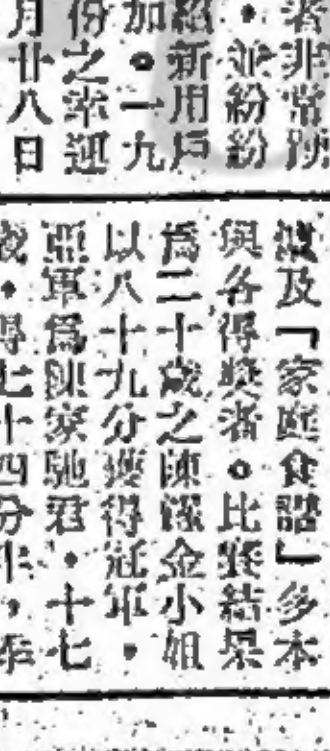 者非常踴
・並紛紛
紹新用戶
加・一九
份之幸運
月廿八日
及「家庭食譜」多本
與各得獎者・比賽結果
為二十歲之陳金小姐
以八十九分獲得冠軍・
亞軍為陳家馳君・十七
歲・得七十四分半・季